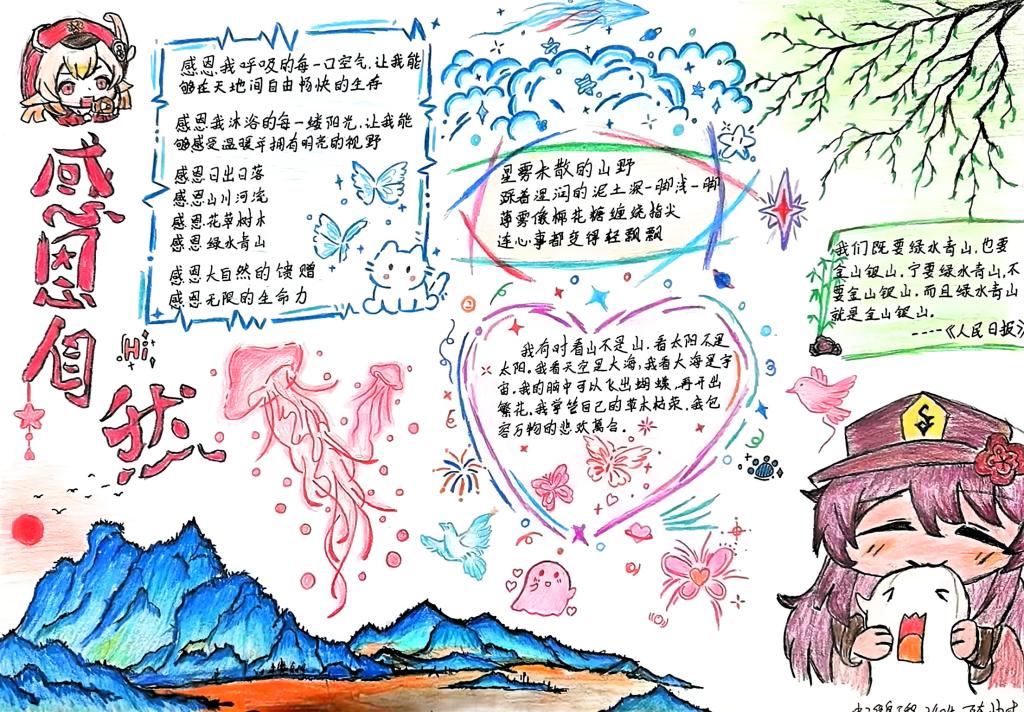 感恩自然
Hi
感恩我呼吸的每一口空气,让我能
够在天地间自由畅快的生存
感恩我沐浴的每一缕阳光,让我能
够感受温暖并拥有明亮的视野
感恩日出日落
感恩山川河流
感恩花草树木
感恩绿水青山
感恩大自然的馈赠
感恩无限的生命力
星雾未散的山野
踩着湿润的泥土深一脚浅一脚
薄雾像棉花糖缠绕指尖
连心事都变得轻飘飘
我有时看山不是山,看太阳不是
太阳。我看天空是大海,我看大海是宇
宙。我的脑中可以飞出蝴蝶,再开出
繁花。我掌管自己的草木枯荣。我包
容万物的悲欢离合。
我们既要绿水青山,也要
金山银山。宁要绿水青山,不
要金山银山。而且绿水青山
就是金山银山。
----《人民日报》